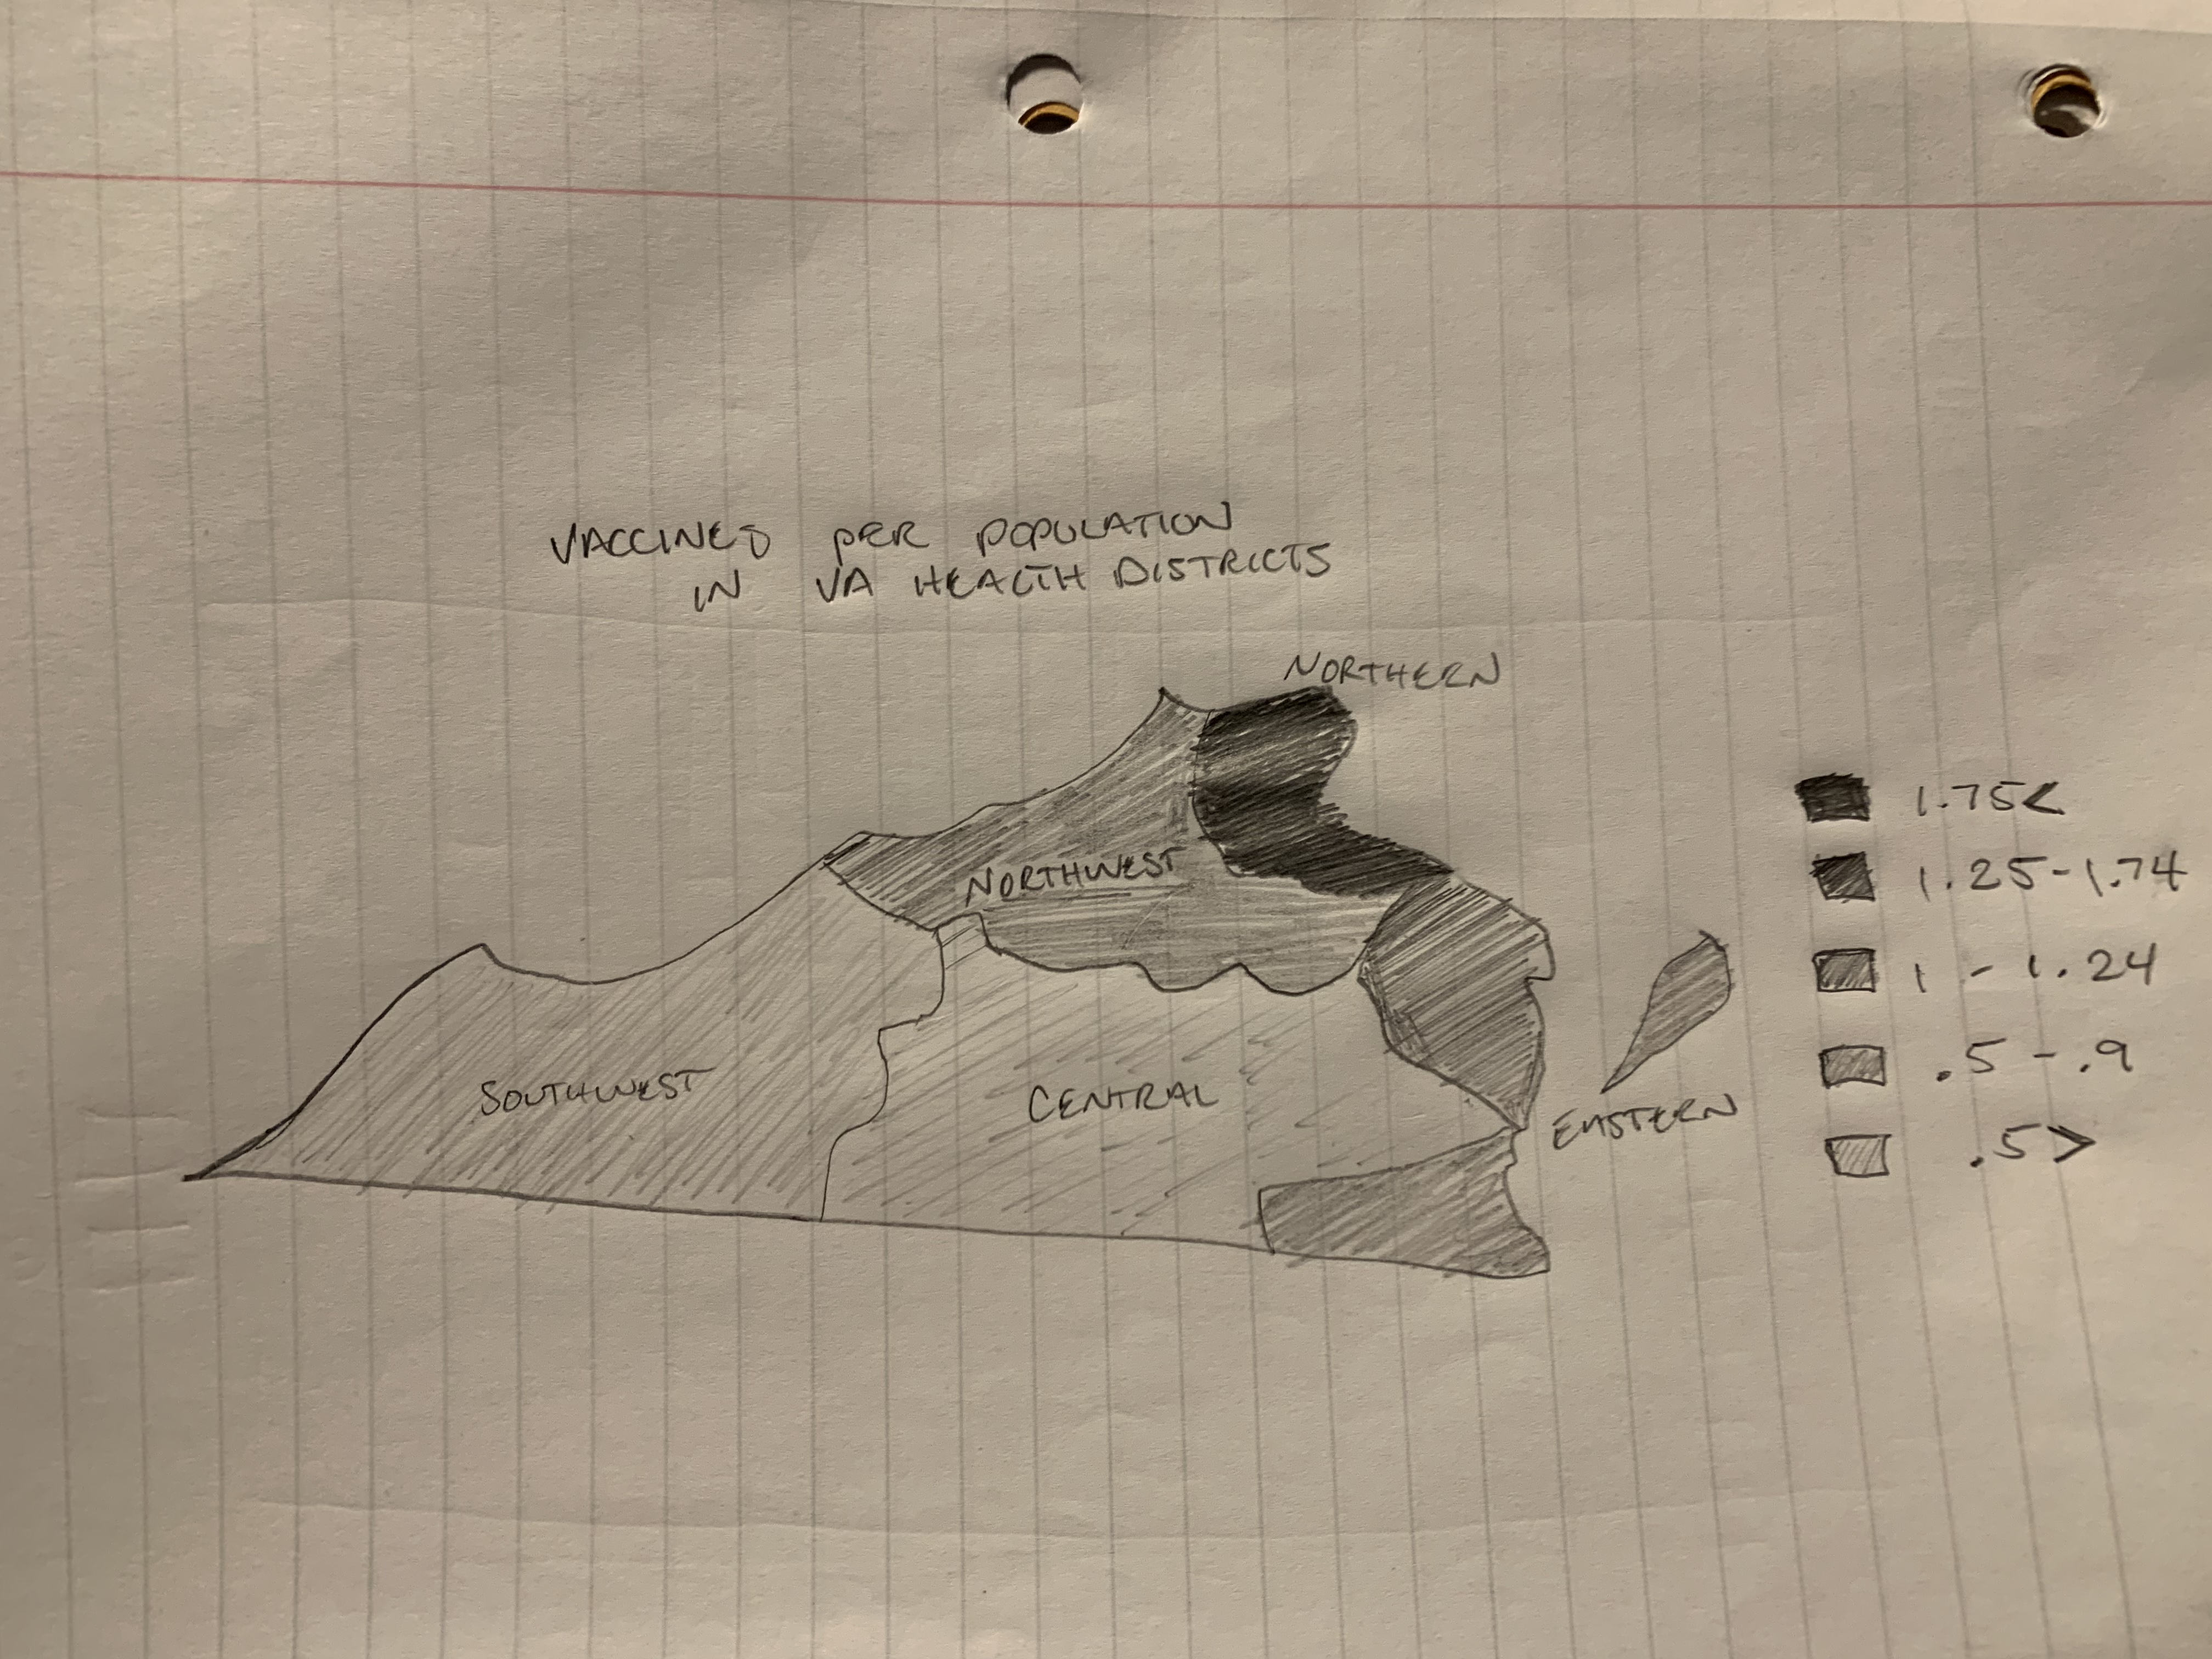 VACCINES PER POPULATION
IN VA HEALTH DISTRICTS
NORTHERN
NORTHWEST
SOUTHWEST
CENTRAL
EASTERN
1.75<
1.25-1.74
1 - 1.24
.5 - .9
.5>